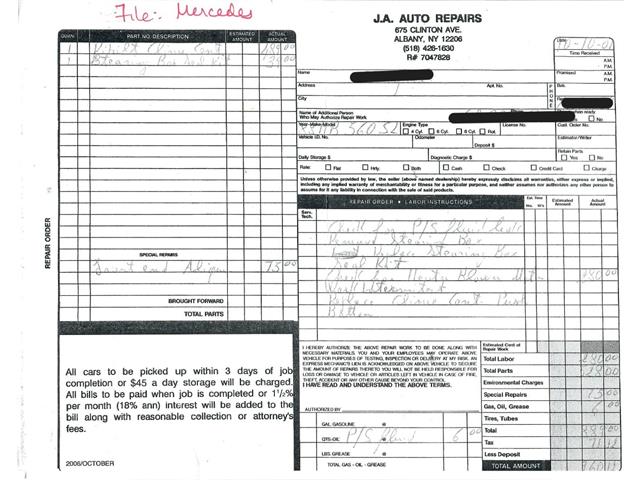 File: Mercedes
J.A. AUTO REPAIRS
675 CLINTON AVE.
ALBANY, NY 12206
(518) 426-1630
R# 7047828
QUAN. PART NO./DESCRIPTION ESTIMATED AMOUNT ACTUAL AMOUNT
1 Rebilt Clime Cont
1 Stearing Box Seal Kit
Date
Time Received
A.M.
P.M.
Name
Promised A.M.
P.M.
Address Apt. No. PHONE Bus.
City
Name of Additional Person
Who May Authorize Repair Work
No
Year-Make-Model Engine Type License No. Cust. Order No.
88 MB 560 SL 4 Cyl. 6 Cyl. 8 Cyl. Rot.
Vehicle I.D. No. Odometer Deposit $ Estimator/Writer
Retain Parts
Yes No
Daily Storage $ Diagnostic Charge $
Rate: Flat Hrly. Both Cash Check Credit Card Charge
Unless otherwise provided by law, the seller (above named dealership) hereby expressly disclaims all warranties, either express or implied,
including any implied warranty of merchantability or fitness for a particular purpose, and neither assumes nor authorizes any other person to
assume for it any liability in connection with the sale of said products.
REPAIR ORDER - LABOR INSTRUCTIONS Est. Time Estimated Amount Actual Amount
Serv. Tech.
Check for P/S fluid leak
Remove Stearing Box
Stearing Box
Seal Kit
Check for Heater Blower
Work Intermitent
Replace Clime Cont Push
Button
REPAIR ORDER
SPECIAL REPAIRS
Front end Align 75 00
BROUGHT FORWARD
TOTAL PARTS
All cars to be picked up within 3 days of job
completion or $45 a day storage will be charged.
All bills to be paid when job is completed or 1½%
per month (18% ann) interest will be added to the
bill along with reasonable collection or attorney's
fees.
2006/OCTOBER
I HEREBY AUTHORIZE THE ABOVE REPAIR WORK TO BE DONE ALONG WITH
NECESSARY MATERIALS. YOU AND YOUR EMPLOYEES MAY OPERATE ABOVE
VEHICLE FOR PURPOSES OF TESTING, INSPECTION OR DELIVERY AT MY RISK. AN
EXPRESS MECHANIC'S LIEN IS ACKNOWLEDGED ON ABOVE VEHICLE TO SECURE
THE AMOUNT OF REPAIRS THERETO. YOU WILL NOT BE HELD RESPONSIBLE FOR
LOSS OR DAMAGE TO VEHICLE OR ARTICLES LEFT IN VEHICLE IN CASE OF FIRE,
THEFT, ACCIDENT OR ANY OTHER CAUSE BEYOND YOUR CONTROL.
I HAVE READ AND UNDERSTAND THE ABOVE TERMS.
AUTHORIZED BY
GAL. GASOLINE @
QTS. OIL P/S fluid @ 6 00
LBS. GREASE @
TOTAL GAS - OIL - GREASE
Estimated Cost of Repair Work
Total Labor
Total Parts
Environmental Charges
Special Repairs 75 00
Gas, Oil, Grease 6 00
Tires, Tubes
Total
Tax
Less Deposit
TOTAL AMOUNT